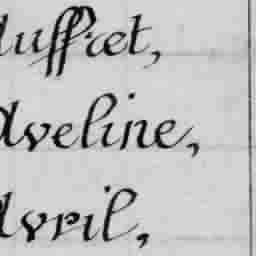 Auffret,
Aveline,
Avril,